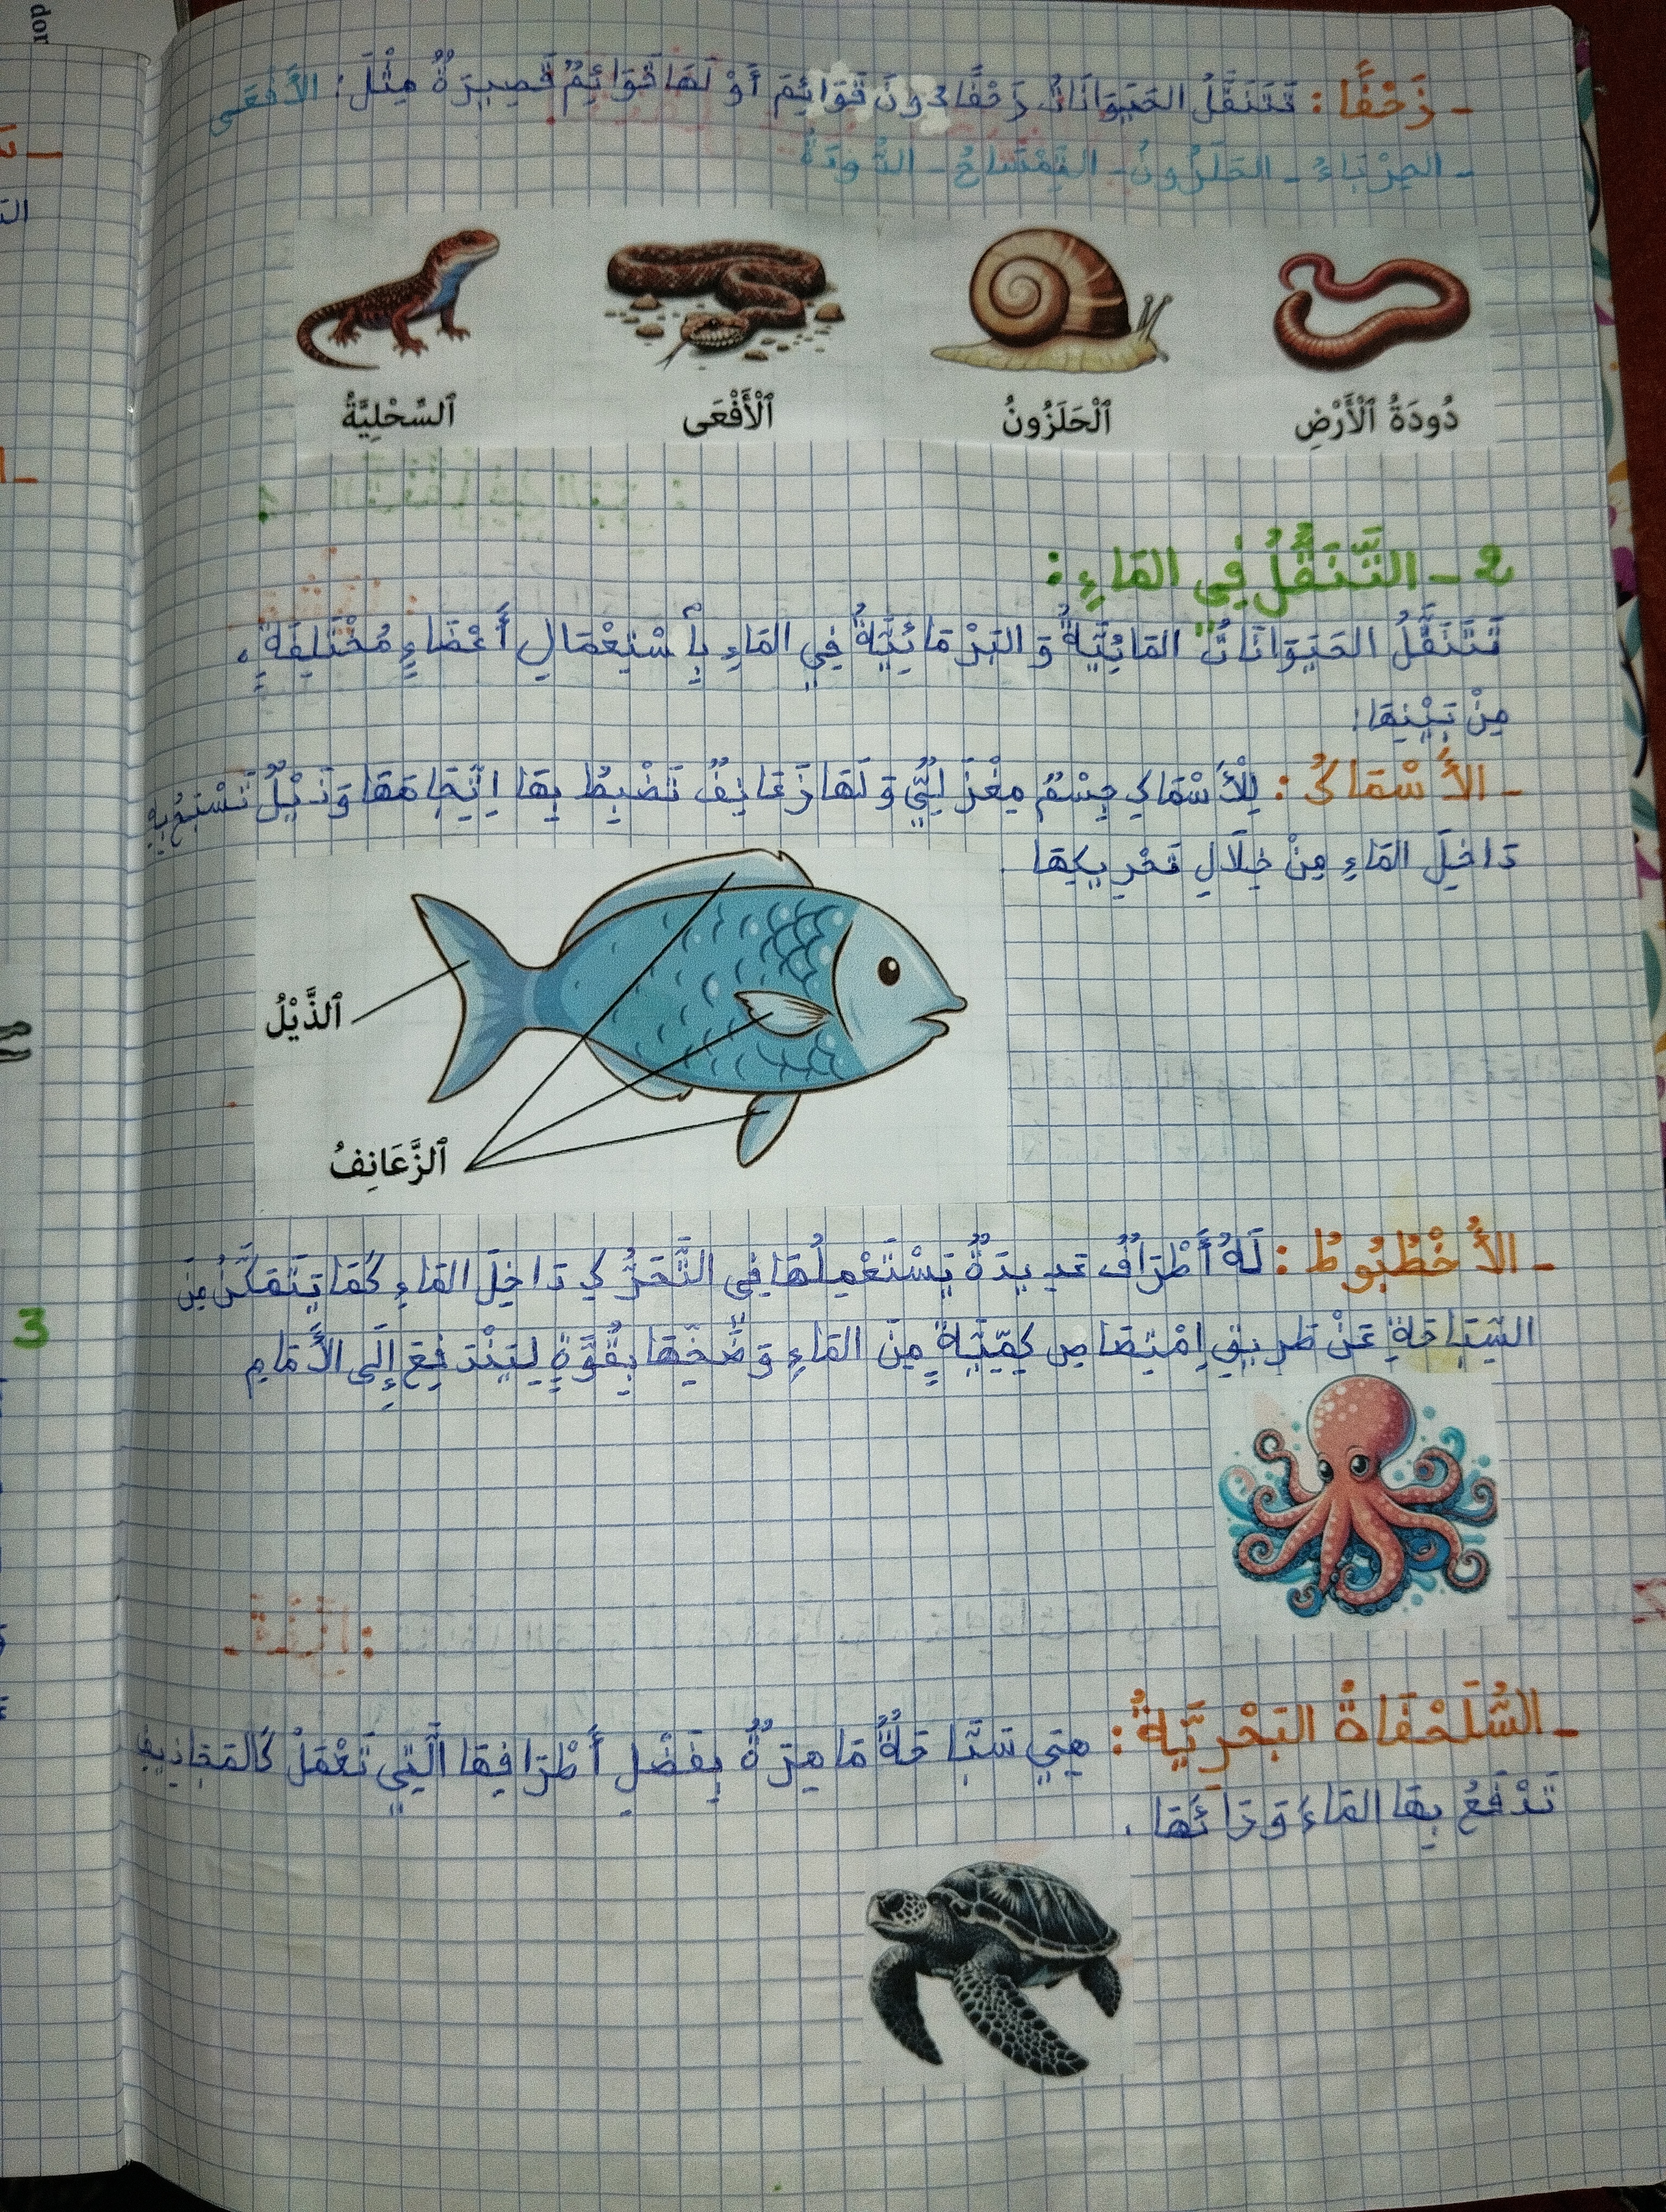 - زَحْفًا: تَتَنَقَّلُ الحَيَوَانَاتُ زَحْفًا دُونَ قَوَائِمَ أَوْ لَهَا قَوَائِمٌ قَصِيرَةٌ مِثْلَ: الأَفْعَى
- الحِرْبَاءُ - الحَلَزُونُ - التِّمْسَاحُ - الدُّودَةُ
دُودَةُ ٱلْأَرْضِ ٱلْحَلَزُونُ ٱلْأَفْعَى ٱلسِّحْلِيَّةُ
2 - التَّنَقُّلُ فِي المَاءِ:
تَتَنَقَّلُ الحَيَوَانَاتُ المَائِيَّةُ وَ البَرْمَائِيَّةُ فِي المَاءِ بِأسْتِعْمَالِ أَعْضَاءٍ مُخْتَلِفَةٍ،
مِنْ بَيْنِهَا:
- الأَسْمَاكُ: لِلْأَسْمَاكِ جِسْمٌ مِغْزَلِيٌّ وَ لَهَا زَعَانِفٌ تَضْبِطُ بِهَا اِتِّجَاهَهَا وَ ذَيْلٌ تَسْبَحُ بِهِ
دَاخِلَ المَاءِ مِنْ خِلَالِ تَحْرِيكِهَا
ٱلذَّيْلُ
ٱلزَّعَانِفُ
- الأُخْطُبُوطُ: لَهُ أَطْرَافٌ عَدِيدَةٌ يَسْتَعْمِلُهَا فِي التَّحَرُّكِ دَاخِلَ المَاءِ كَمَا يَتَمَكَّنُ مِنَ
السِّبَاحَةِ عَنْ طَرِيقِ اِمْتِصَاصِ كِمِّيَّةٍ مِنَ المَاءِ وَ ضَخِّهَا بِقُوَّةٍ لِيَنْدَفِعَ إِلَى الأَمَامِ
- السُّلَحْفَاةُ البَحْرِيَّةُ: هِيَ سَبَّاحَةٌ مَاهِرَةٌ بِفَضْلِ أَطْرَافِهَا الَّتِي تَعْمَلُ كَالمَجَاذِيفِ
تَدْفَعُ بِهَا المَاءَ وَرَائَهَا.
3